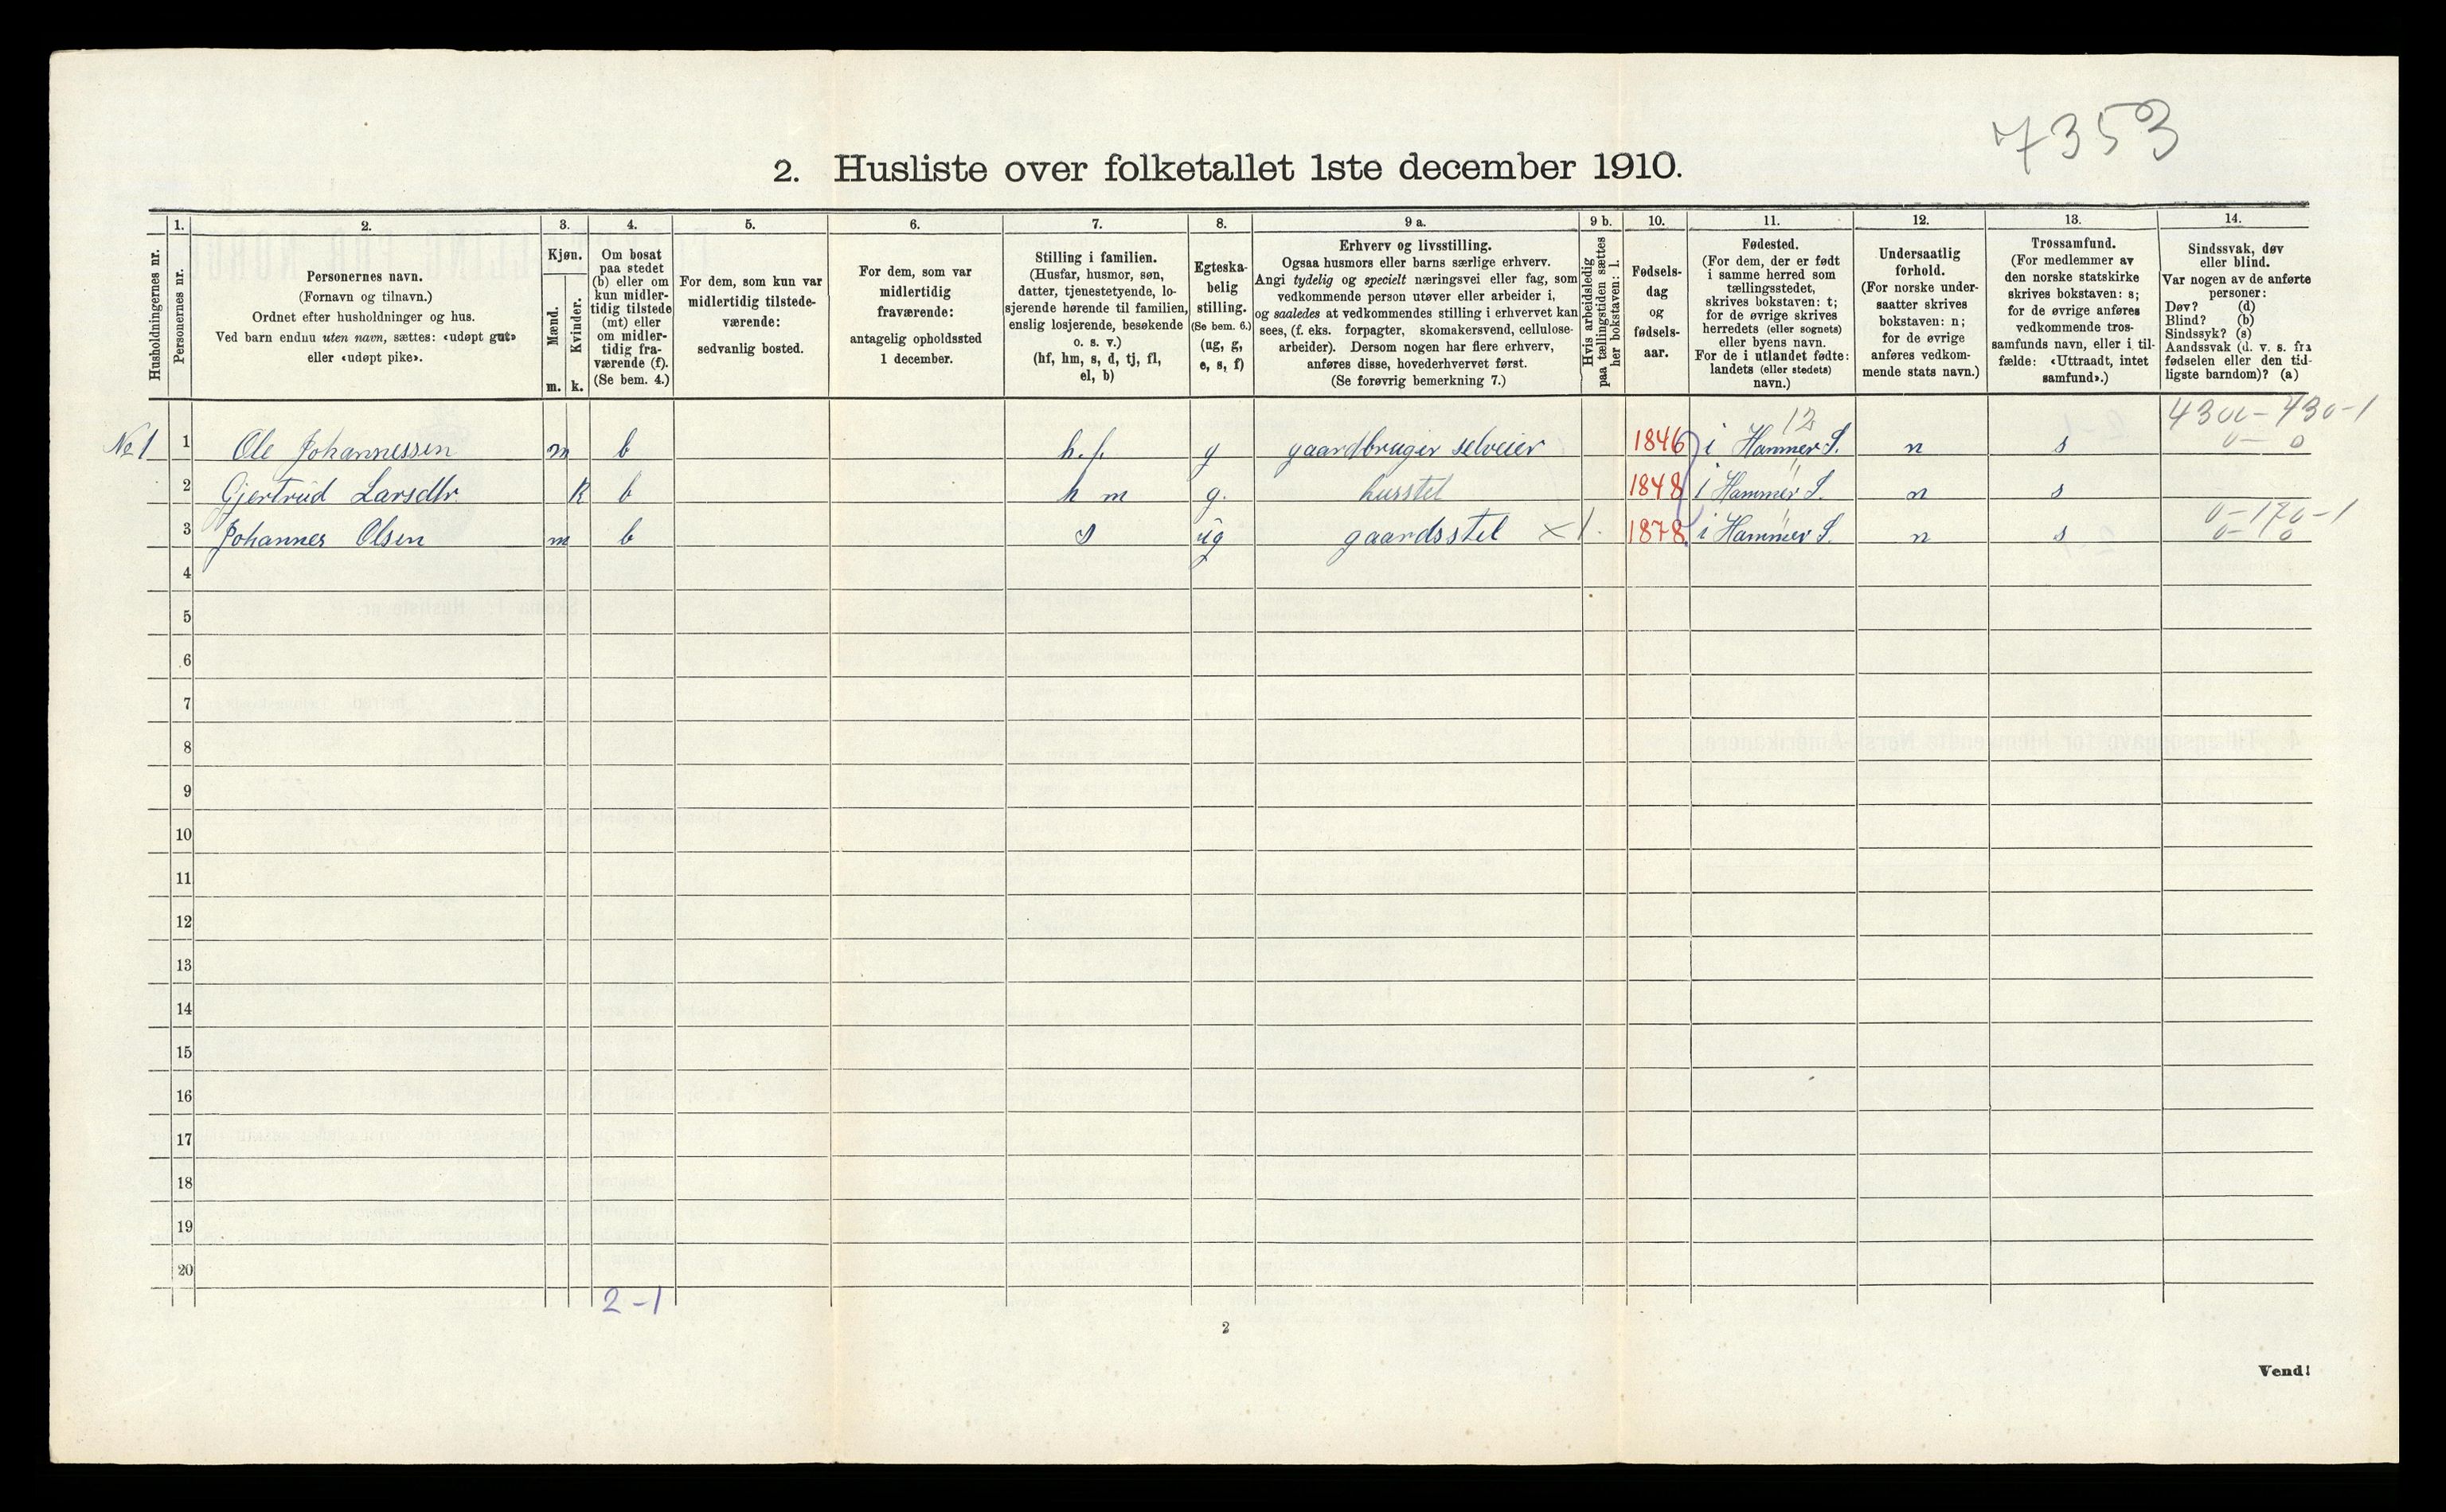 7353
2. Husliste over folketallet 1ste december 1910.
Husholdningernes nr.
1.
Personernes nr.
2.
Personernes navn.
(Fornavn og tilnavn.)
Ordnet efter husholdninger og hus.
Ved barn endnu uten navn, sættes: «udøpt gut»
eller «udøpt pike».
3.
Kjøn.
Mænd.
m.
Kvinder.
k.
4.
Om bosat
paa stedet
(b) eller om
kun midler-
tidig tilstede
(mt) eller
om midler-
tidig fra-
værende (f).
(Se bem. 4.)
5.
For dem, som kun var
midlertidig tilstede-
værende:
sedvanlig bosted.
6.
For dem, som var
midlertidig
fraværende:
antagelig opholdssted
1 december.
7.
Stilling i familien.
(Husfar, husmor, søn,
datter, tjenestetyende, lo-
sjerende hørende til familien,
enslig losjerende, besøkende
o. s. v.)
(hf, hm, s, d, tj, fl,
el, b)
8.
Egteska-
belig
stilling.
(Se bem. 6.)
(ug, g,
e, s, f)
9 a.
Erhverv og livsstilling.
Ogsaa husmors eller barns særlige erhverv.
Angi tydelig og specielt næringsvei eller fag, som
vedkommende person utøver eller arbeider i,
og saaledes at vedkommendes stilling i erhvervet kan
sees, (f. eks. forpagter, skomakersvend, cellulose-
arbeider). Dersom nogen har flere erhverv,
anføres disse, hovederhvervet først.
(Se forøvrig bemerkning 7.)
9 b.
Hvis arbeidsledig
paa tællingstiden sættes
her bokstaven: l.
10.
Fødsels-
dag
og
fødsels-
aar.
11.
Fødested.
(For dem, der er født
i samme herred som
tællingsstedet,
skrives bokstaven: t;
for de øvrige skrives
herredets (eller sognets)
eller byens navn.
For de i utlandet fødte:
landets (eller stedets)
navn.)
12.
Undersaatlig
forhold.
(For norske under-
saatter skrives
bokstaven: n;
for de øvrige
anføres vedkom-
mende stats navn.)
13.
Trossamfund.
(For medlemmer av
den norske statskirke
skrives bokstaven: s;
for de øvrige anføres
vedkommende tros-
samfunds navn, eller i til-
fælde: «Uttraadt, intet
samfund».)
14.
Sindssvak, døv
eller blind.
Var nogen av de anførte
personer:
Døv? (d)
Blind? (b)
Sindssyk? (s)
Aandssvak (d. v. s. fra
fødselen eller den tid-
ligste barndom)? (a)
12
No 1 1 Ole Johannessen m b h.f. g gaardbruger selveier 1846 i Hammer S. n s
2 Gjertrud Larsdtr k b h m g. husstel 1848 i Hammer S. n s
3 Johannes Olsen m b s ug gaardsstel x 1. 1878 i Hammer S. n s
4
5
6
7
8
9
10
11
12
13
14
15
16
17
18
19
20
2-1
2
Vend!